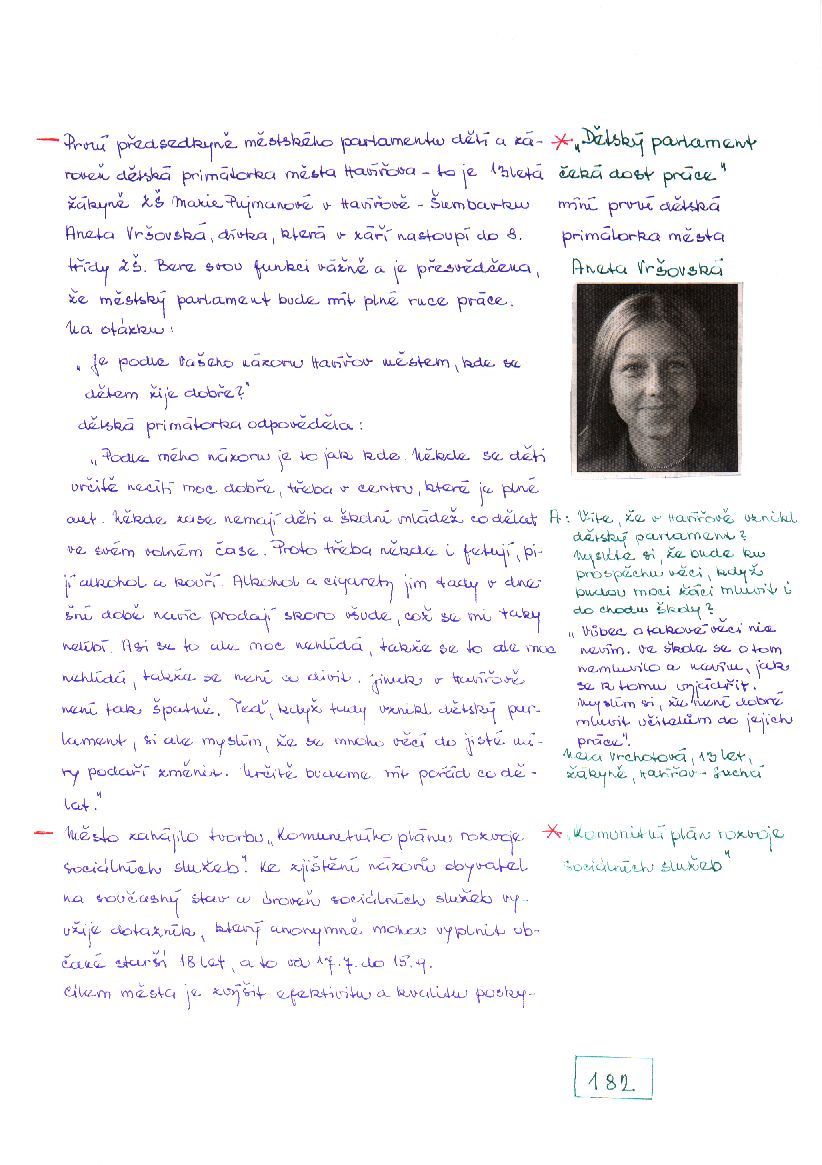 První předsedkyně městského parlamentu dětí a zá-
roveň dětská primátorka města Havířova - to je 13letá
žákyně ZŠ Marie Pujmanové v Havířově - Šumbarku
Aneta Vršovská, dívka, která v září nastoupí do 8.
třídy ZŠ. Bere svou funkci vážně a je přesvědčena,
že městský parlament bude mít plné ruce práce.
Na otázku:
„Je podle Vašeho názoru Havířov městem, kde se
dětem žije dobře?"
dětská primátorka odpověděla:
„Podle mého názoru je to jak kde. Někde se děti
určitě necítí moc dobře, třeba v centru, které je plné
aut. Někde zase nemají děti a školní mládež co dělat
ve svém volném čase. Proto třeba někde i fetují, pi-
jí alkohol a kouří. Alkohol a cigarety jim tady v dne-
šní době navíc prodají skoro všude, což se mi taky
nelíbí. Asi se to ale moc nehlídá, takže se to ale moc
nehlídá, takže se není a divit. Jinak v Havířově
není tak špatně. Teď, když tady vznikl dětský par-
lament, si ale myslím, že se mnoho věcí do jisté mí-
ry podaří změnit. Určitě budeme mít pořád co dě-
lat."
Město zahájilo tvorbu „Komunitního plánu rozvoje
sociálních služeb". Ke zjištění názorů obyvatel
na současný stav a úroveň sociálních služeb vy-
užije dotazník, který anonymně mohou vyplnit ob-
čané starší 18 let, a to od 17.7. do 15.9.
Cílem města je zvýšit efektivitu a kvalitu posky-
„Dětský parlament
čeká dost práce"
míní první dětská
primátorka města
Aneta Vršovská
A: Víte, že v Havířově vznikl
dětský parlament?
Myslíte si, že bude ku
prospěchu věci, když
budou moci žáci mluvit i
do chodu školy?
„Vůbec o takové věci nic
nevím. Ve škole se o tom
nemluvilo a nevím, jak
se k tomu vyjádřit.
Myslím si, že není dobré
mluvit učitelům do jejich
práce".
Vrchotová, 13 let,
žákyně, Havířov - Suchá
„Komunitní plán rozvoje
sociálních služeb"
182